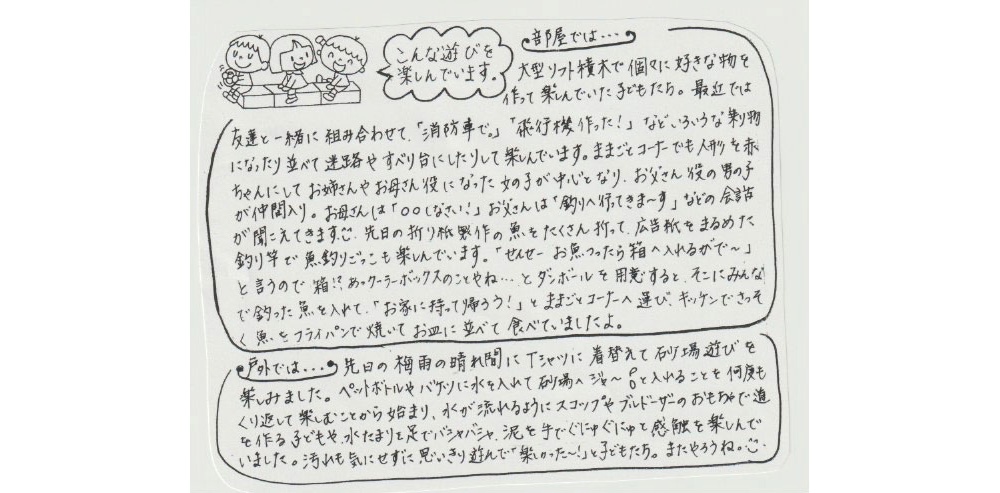 こんな遊びを
楽しんでいます。
部屋では・・・
大型ソフト積木で個々に好きな物を
作って楽しんでいた子どもたち。最近では
友達と一緒に組み合わせて、「消防車で。」「飛行機作った!」などいろいろな乗り物
になったり並べて迷路やすべり台にしたりして楽しんでいます。ままごとコーナーでも人形を赤
ちゃんにしてお姉さんやお母さん役になった女の子が中心となり、お父さん役の男の子
が仲間入り。お母さんは「〇〇しなさい!」お父さんは「釣りへ行ってきま〜す」などの会話
が聞こえてきます。先日の折り紙製作の魚をたくさん折って、広告紙をまるめた
釣り竿で魚釣りごっこも楽しんでいます。「せんせーお魚つったら箱へ入れるがで〜」
と言うので箱!?あっクーラーボックスのことやね…とダンボールを用意すると、そこにみんな
で釣った魚を入れて、「お家に持って帰ろう!」とままごとコーナーへ運び、キッチンでさっそ
く魚をフライパンで焼いてお皿に並べて食べていましたよ。
戸外では・・・
先日の梅雨の晴れ間にTシャツに着替えて砂場遊びを
楽しみました。ペットボトルやバケツに水を入れて砂場へジャ〜と入れることを何度も
くり返して楽しむことから始まり、水が流れるようにスコップやブルドーザーのおもちゃで道
を作る子どもや、水たまりを足でバシャバシャ、泥を手でぐにゅぐにゅと感触を楽しんで
いました。汚れも気にせずに思いきり遊んで「楽しかった〜!」と子どもたち。またやろうね。